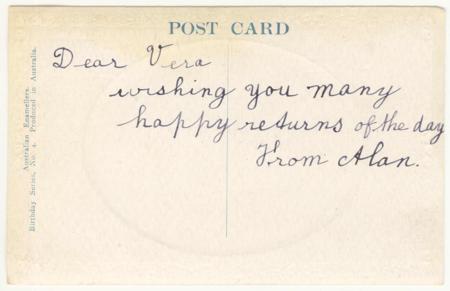 POST CARD
Dear Vera
wishing you many
happy returns of the day
From Alan.
Australian Enamellers.
Birthday Series, No. 4. Produced in Australia.